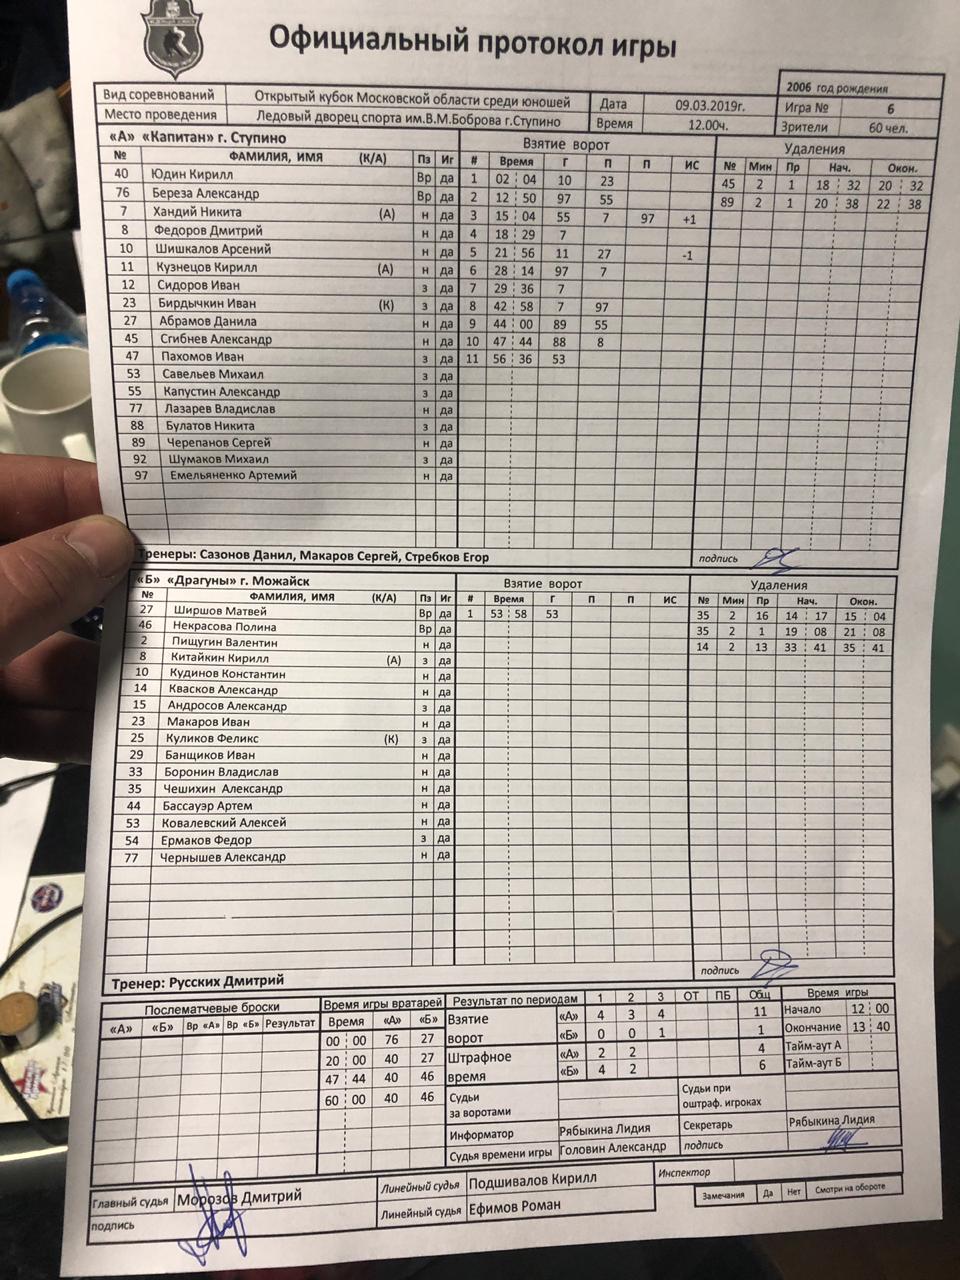 Официальный протокол игры
2006 год рождения
Вид соревнований Открытый кубок Московской области среди юношей Дата 09.03.2019г. Игра № 6
Место проведения Ледовый дворец спорта им.В.М.Боброва г.Ступино Время 12.00ч. Зрители 60 чел.
«А» «Капитан» г. Ступино Взятие ворот Удаления
№ ФАМИЛИЯ, ИМЯ (К/А) Пз Иг # Время Г П П ИС № Мин Пр Нач. Окон.
40 Юдин Кирилл Вр да 1 02 04 10 23 45 2 1 18 32 20 32
76 Береза Александр Вр да 2 12 50 97 55 89 2 1 20 38 22 38
7 Хандий Никита (А) н да 3 15 04 55 7 97 +1
8 Федоров Дмитрий н да 4 18 29 7
10 Шишкалов Арсений н да 5 21 56 11 27 -1
11 Кузнецов Кирилл (А) н да 6 28 14 97 7
12 Сидоров Иван з да 7 29 36 7
23 Бирдычкин Иван (К) з да 8 42 58 7 97
27 Абрамов Данила н да 9 44 00 89 55
45 Сгибнев Александр н да 10 47 44 88 8
47 Пахомов Иван з да 11 56 36 53
53 Савельев Михаил з да
55 Капустин Александр з да
77 Лазарев Владислав н да
88 Булатов Никита з да
89 Черепанов Сергей н да
92 Шумаков Михаил з да
97 Емельяненко Артемий н да
Тренеры: Сазонов Данил, Макаров Сергей, Стребков Егор подпись
«Б» «Драгуны» г. Можайск Взятие ворот Удаления
№ ФАМИЛИЯ, ИМЯ (К/А) Пз Иг # Время Г П П ИС № Мин Пр Нач. Окон.
27 Ширшов Матвей Вр да 1 53 58 53 35 2 16 14 17 15 04
46 Некрасова Полина Вр да 35 2 1 19 08 21 08
2 Пищугин Валентин н да 14 2 13 33 41 35 41
8 Китайкин Кирилл (А) з да
10 Кудинов Константин н да
14 Квасков Александр н да
15 Андросов Александр з да
23 Макаров Иван н да
25 Куликов Феликс (К) з да
29 Банщиков Иван н да
33 Боронин Владислав н да
35 Чешихин Александр н да
44 Бассауэр Артем н да
53 Ковалевский Алексей н да
54 Ермаков Федор з да
77 Чернышев Александр н да
Тренер: Русских Дмитрий подпись
Послематчевые броски Время игры вратарей Результат по периодам 1 2 3 ОТ ПБ Общ Время игры
«А» «Б» Вр «А» Вр «Б» Результат Время «А» «Б» Взятие ворот «А» 4 3 4 11 Начало 12 00
00 00 76 27 «Б» 0 0 1 1 Окончание 13 40
20 00 40 27 Штрафное время «А» 2 2 4 Тайм-аут А
47 44 40 46 «Б» 4 2 6 Тайм-аут Б
60 00 40 46 Судьи за воротами Судьи при оштраф. игроках
Информатор Рябыкина Лидия Секретарь Рябыкина Лидия
Судья времени игры Головин Александр подпись
Главный судья Морозов Дмитрий Линейный судья Подшивалов Кирилл Инспектор
подпись Линейный судья Ефимов Роман Замечания Да Нет Смотри на обороте